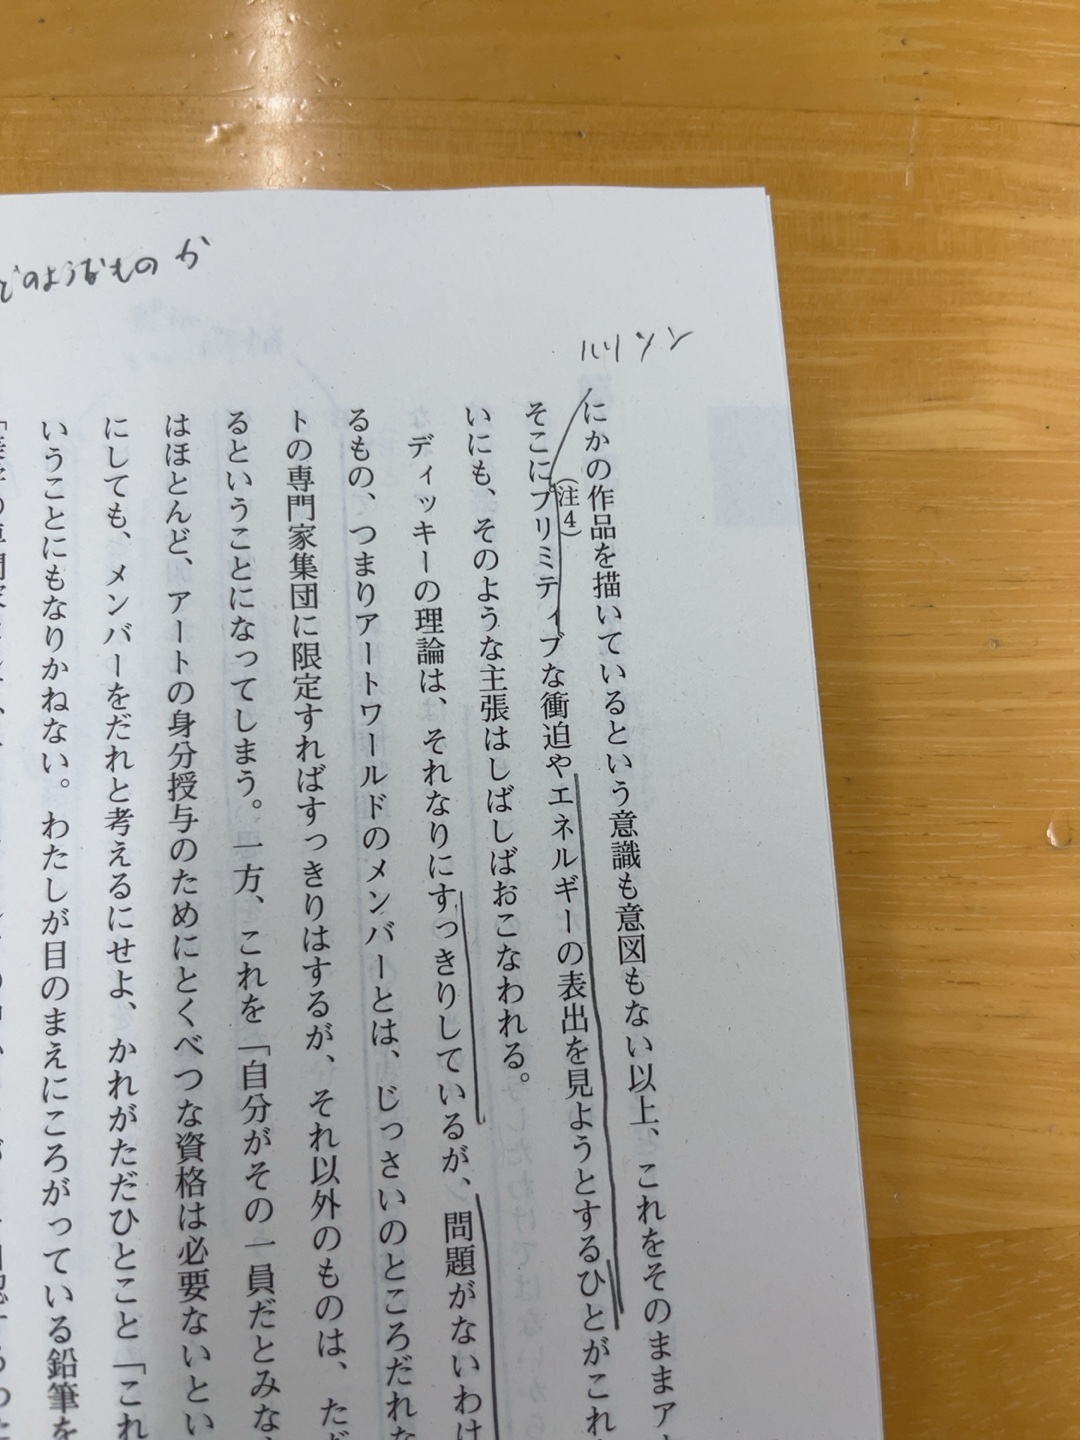 どのようなものか
にかの作品を描いているという意識も意図もない以上、これをそのままア
(注4)
そこにプリミティブな衝迫やエネルギーの表出を見ようとするひとがこれ
いにも、そのような主張はしばしばおこなわれる。
ディッキーの理論は、それなりにすっきりしているが、問題がないわけ
るもの、つまりアートワールドのメンバーとは、じっさいのところだれな
トの専門家集団に限定すればすっきりはするが、それ以外のものは、ただ
るということになってしまう。一方、これを「自分がその一員だとみな
はほとんど、アートの身分授与のためにとくべつな資格は必要ないとい
にしても、メンバーをだれと考えるにせよ、かれがただひとこと「これ
いうことにもなりかねない。わたしが目のまえにころがっている鉛筆を